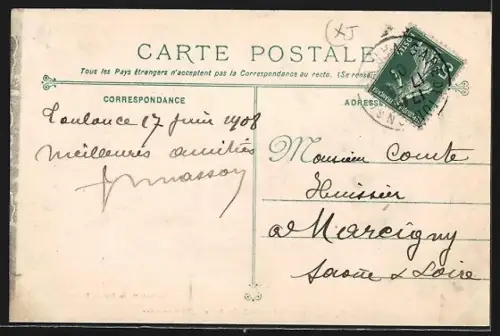 (XJ)
CARTE POSTALE
Tous les Pays étrangers n'acceptent pas la Correspondance au recto. (Se renseig
CORRESPONDANCE
ADRESSE
17 juin 1908
meilleures amitiés
Monsieur Comte
Huissier
à Marcigny
Saone & Loire